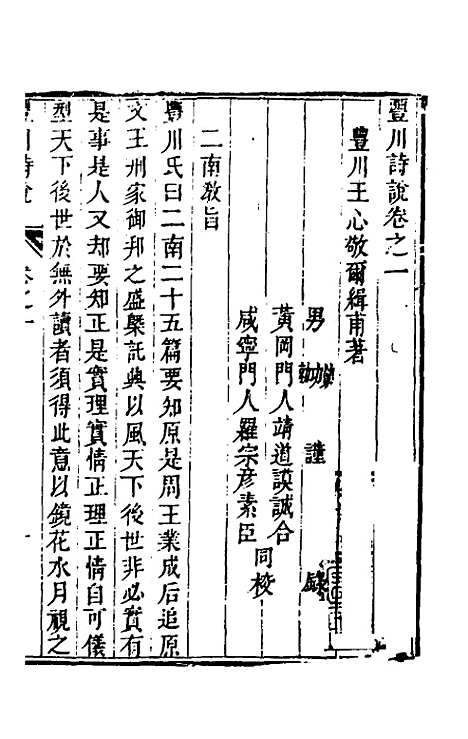 豐川詩說卷之一
豐川王心敬爾緝甫著
男
謹
錄
黃岡門人靖道謨誠合
咸寧門人羅宗彦素臣
同校
二南敘旨
豐川氏曰二南二十五篇要知原是周王業成后追原
文王刑家御邦之盛槩託興以風天下後世非必實有
是事是人又却要知正是實理實情正理正情自可儀
型天下後世於無外讀者須得此意以鏡花水月視之
豐川詩說
卷之一